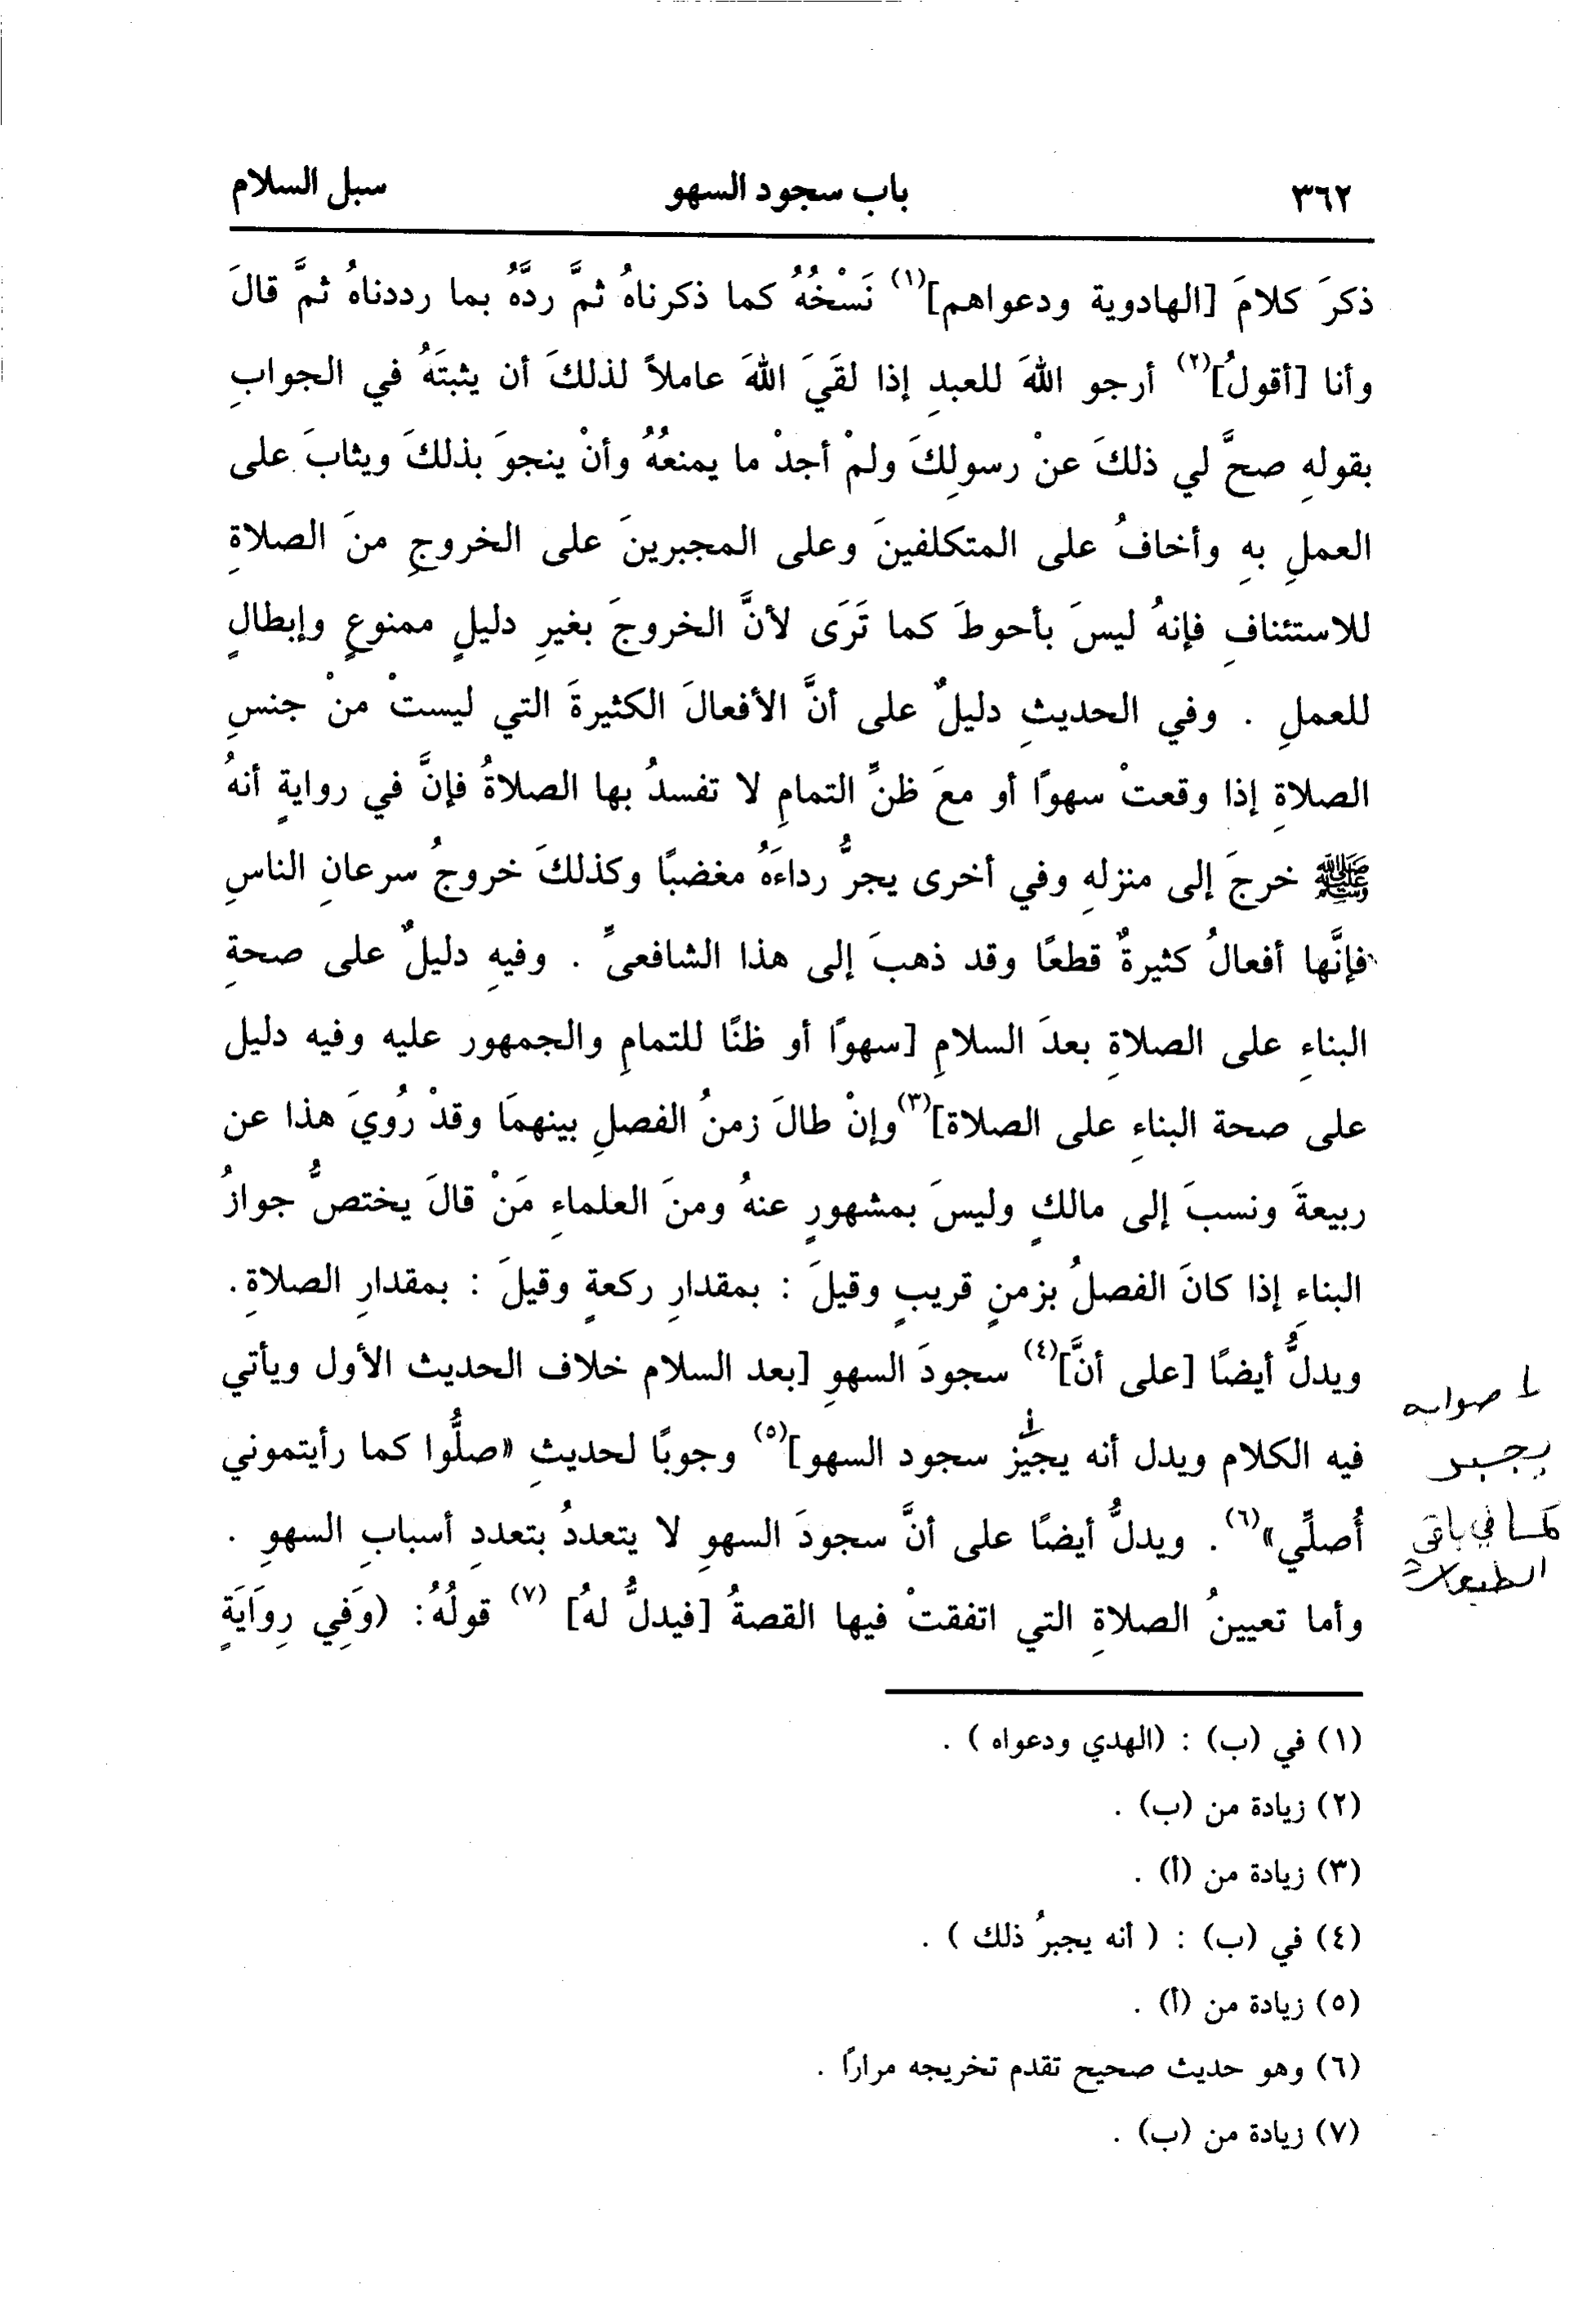 ٣٦٢ باب سجود السهو سبل السلام
ذكرَ كلامَ [الهادوية ودعواهم]⁽١⁾ نَسْخُهُ كما ذكرناهُ ثمَّ ردَّهُ بما رددناهُ ثمَّ قالَ
وأنا [أقولُ]⁽٢⁾ أرجو اللهَ للعبدِ إذا لقَيَ اللهَ عاملاً لذلكَ أن يثبتَهُ في الجوابِ
بقولهِ صحَّ لي ذلكَ عنْ رسولِكَ ولمْ أجدْ ما يمنعُهُ وأنْ ينجوَ بذلكَ ويثابَ على
العملِ بهِ وأخافُ على المتكلفينَ وعلى المجبرينَ على الخروجِ منَ الصلاةِ
للاستئنافِ فإنهُ ليسَ بأحوطَ كما تَرَى لأنَّ الخروجَ بغيرِ دليلٍ ممنوعٍ وإبطالٍ
للعملِ . وفي الحديثِ دليلٌ على أنَّ الأفعالَ الكثيرةَ التي ليستْ منْ جنسِ
الصلاةِ إذا وقعتْ سهوًا أو معَ ظنِّ التمامِ لا تفسدُ بها الصلاةُ فإنَّ في روايةٍ أنهُ
ﷺ خرجَ إلى منزلهِ وفي أخرى يجرُّ رداءَهُ مغضبًا وكذلكَ خروجُ سرعانِ الناسِ
فإنَّها أفعالُ كثيرةٌ قطعًا وقد ذهبَ إلى هذا الشافعيِّ . وفيهِ دليلٌ على صحةِ
البناءِ على الصلاةِ بعدَ السلامِ [سهوًا أو ظنًا للتمامِ والجمهور عليه وفيه دليل
على صحة البناءِ على الصلاة]⁽٣⁾ وإنْ طالَ زمنُ الفصلِ بينهمَا وقدْ رُويَ هذا عن
ربيعةَ ونسبَ إلى مالكٍ وليسَ بمشهورٍ عنهُ ومنَ العلماءِ مَنْ قالَ يختصُّ جوازُ
البناءِ إذا كانَ الفصلُ بزمنٍ قريبٍ وقيلَ : بمقدارِ ركعةٍ وقيلَ : بمقدارِ الصلاةِ .
ويدلُّ أيضًا [على أنَّ]⁽٤⁾ سجودَ السهوِ [بعد السلام خلاف الحديث الأول ويأتي
فيه الكلام ويدل أنه يجيز سجود السهو]⁽٥⁾ وجوبًا لحديثِ «صلُّوا كما رأيتموني
أُصلِّي»⁽٦⁾ . ويدلُّ أيضًا على أنَّ سجودَ السهوِ لا يتعددُ بتعددِ أسبابِ السهوِ .
وأما تعيينُ الصلاةِ التي اتفقتْ فيها القصةُ [فيدلُّ لهُ] ⁽٧⁾ قولُهُ: (وَفِي رِوَايَةٍ
صوابه
يجبر
كما في باقي
الطبعات
(١) في (ب) : (الهدي ودعواه ) .
(٢) زيادة من (ب) .
(٣) زيادة من (أ) .
(٤) في (ب) : ( أنه يجبرُ ذلك ) .
(٥) زيادة من (أ) .
(٦) وهو حديث صحيح تقدم تخريجه مرارًا .
(٧) زيادة من (ب) .